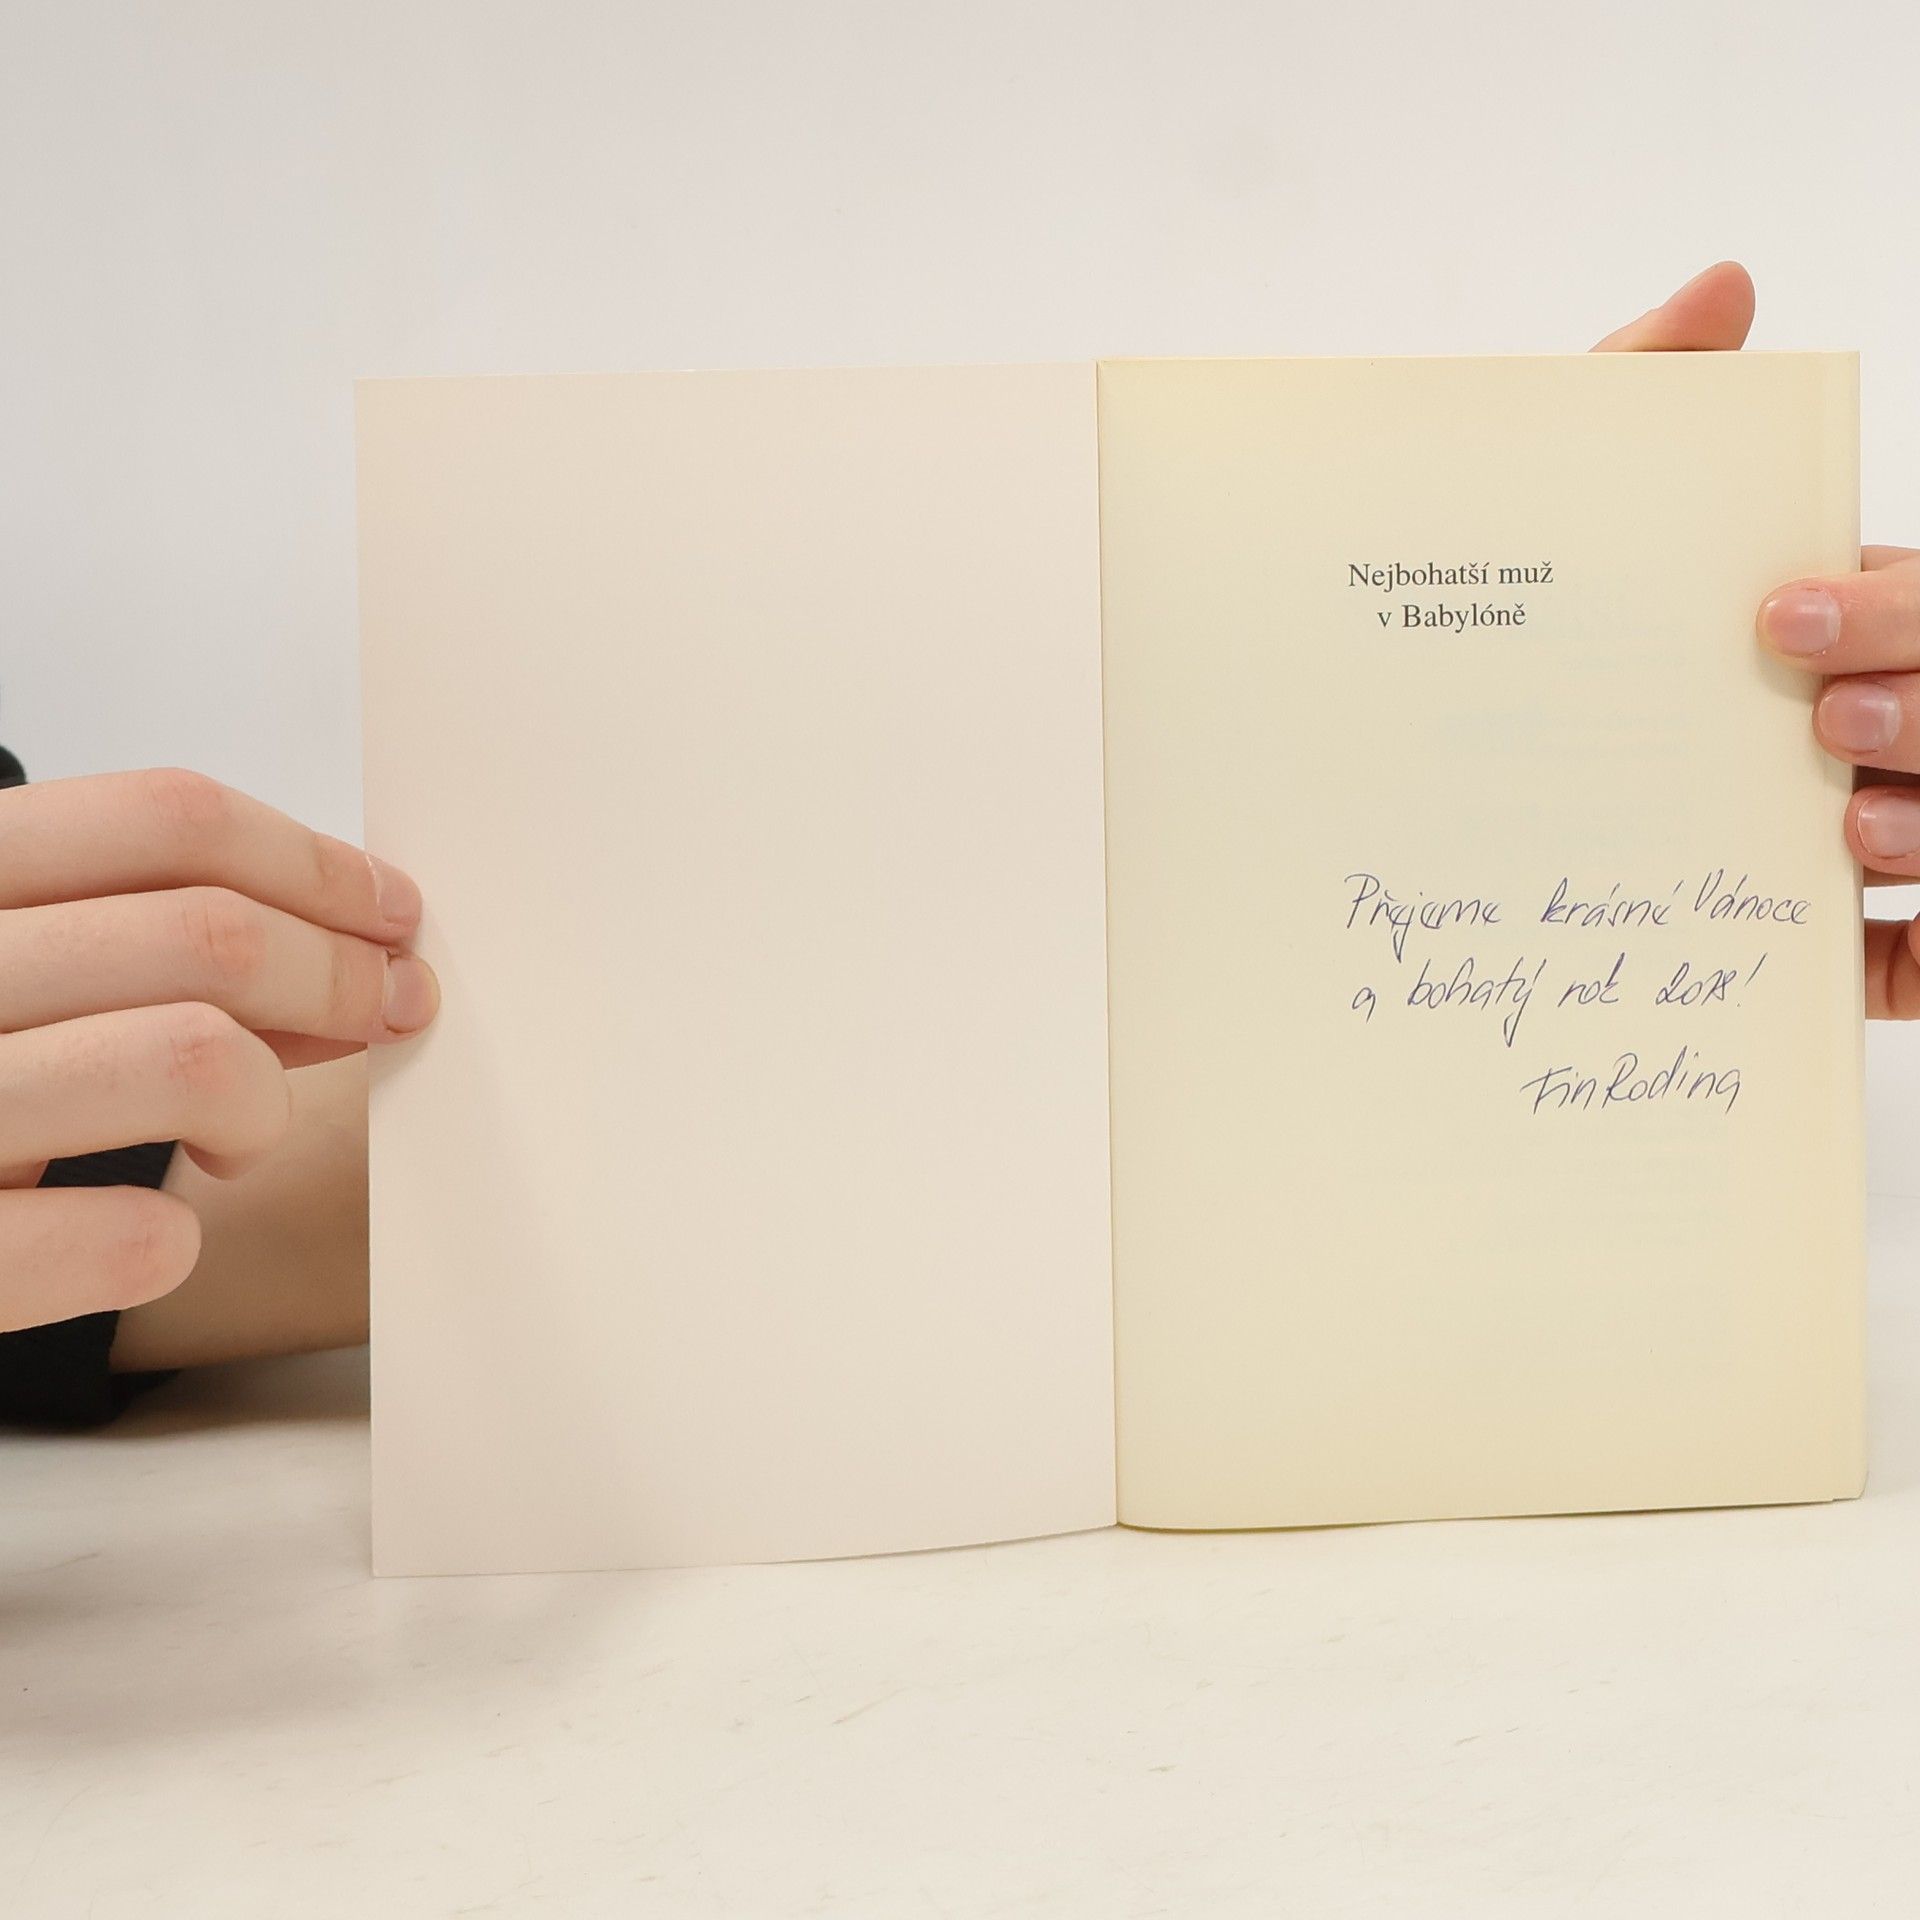 Nejbohatší muž
v Babylóně
Přejeme krásné Vánoce
a bohatý rok 2018!
FinRodina